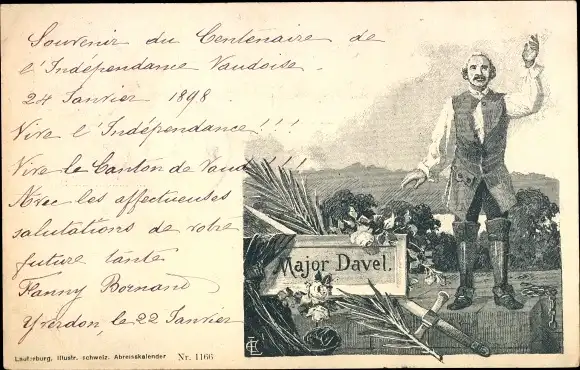 Souvenir du Centenaire de
l'Indépendance Vaudoise
24 Janvier 1898
Vive l'Indépendance!!!
Vive le Canton de Vaud!!!
Avec les affectueuses
salutations de votre
future tante
Fanny Bornand
Yverdon, le 22 Janvier
Major Davel.
Lauterburg, Illustr. schweiz. Abreisskalender Nr. 1166